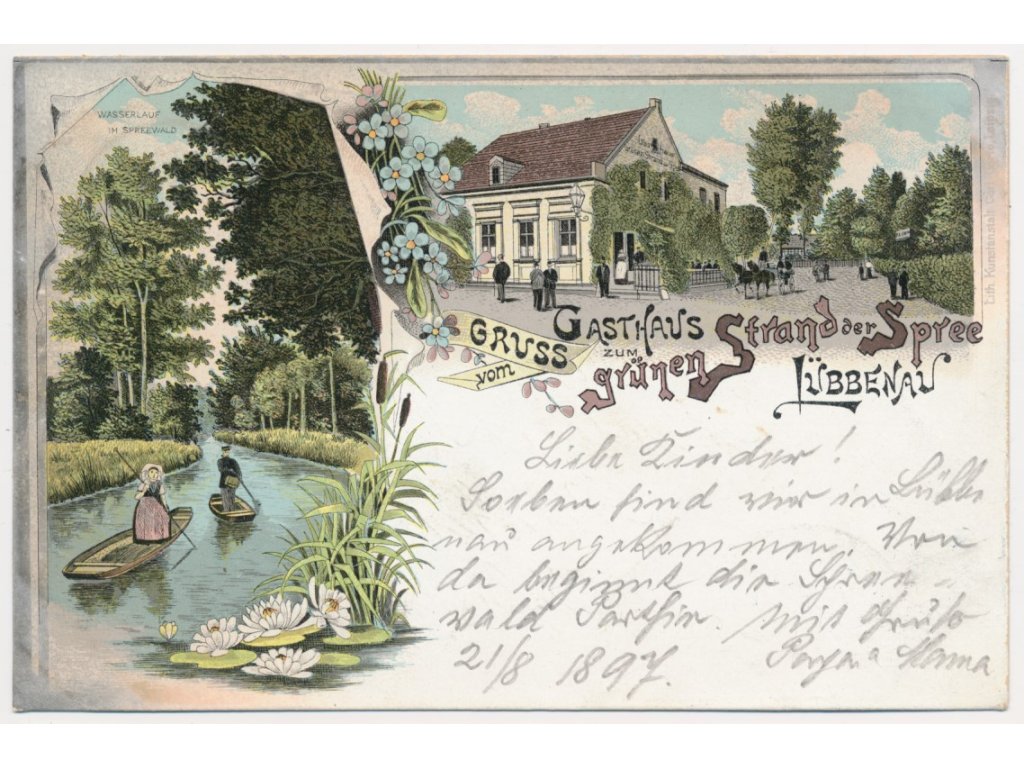 WASSERLAUF
IM SPREEWALD
GRUSS
vom
GASTHAUS
ZUM
grünen Strand der Spree
LÜBBENAU
Liebe Kinder!
Soeben sind wir in Lübbe
nau angekommen. Von
da beginnt die Spree-
wald Parthie. Mit Gruß
21/8 1897. Papa u Mama
Lith. Kunstanstalt